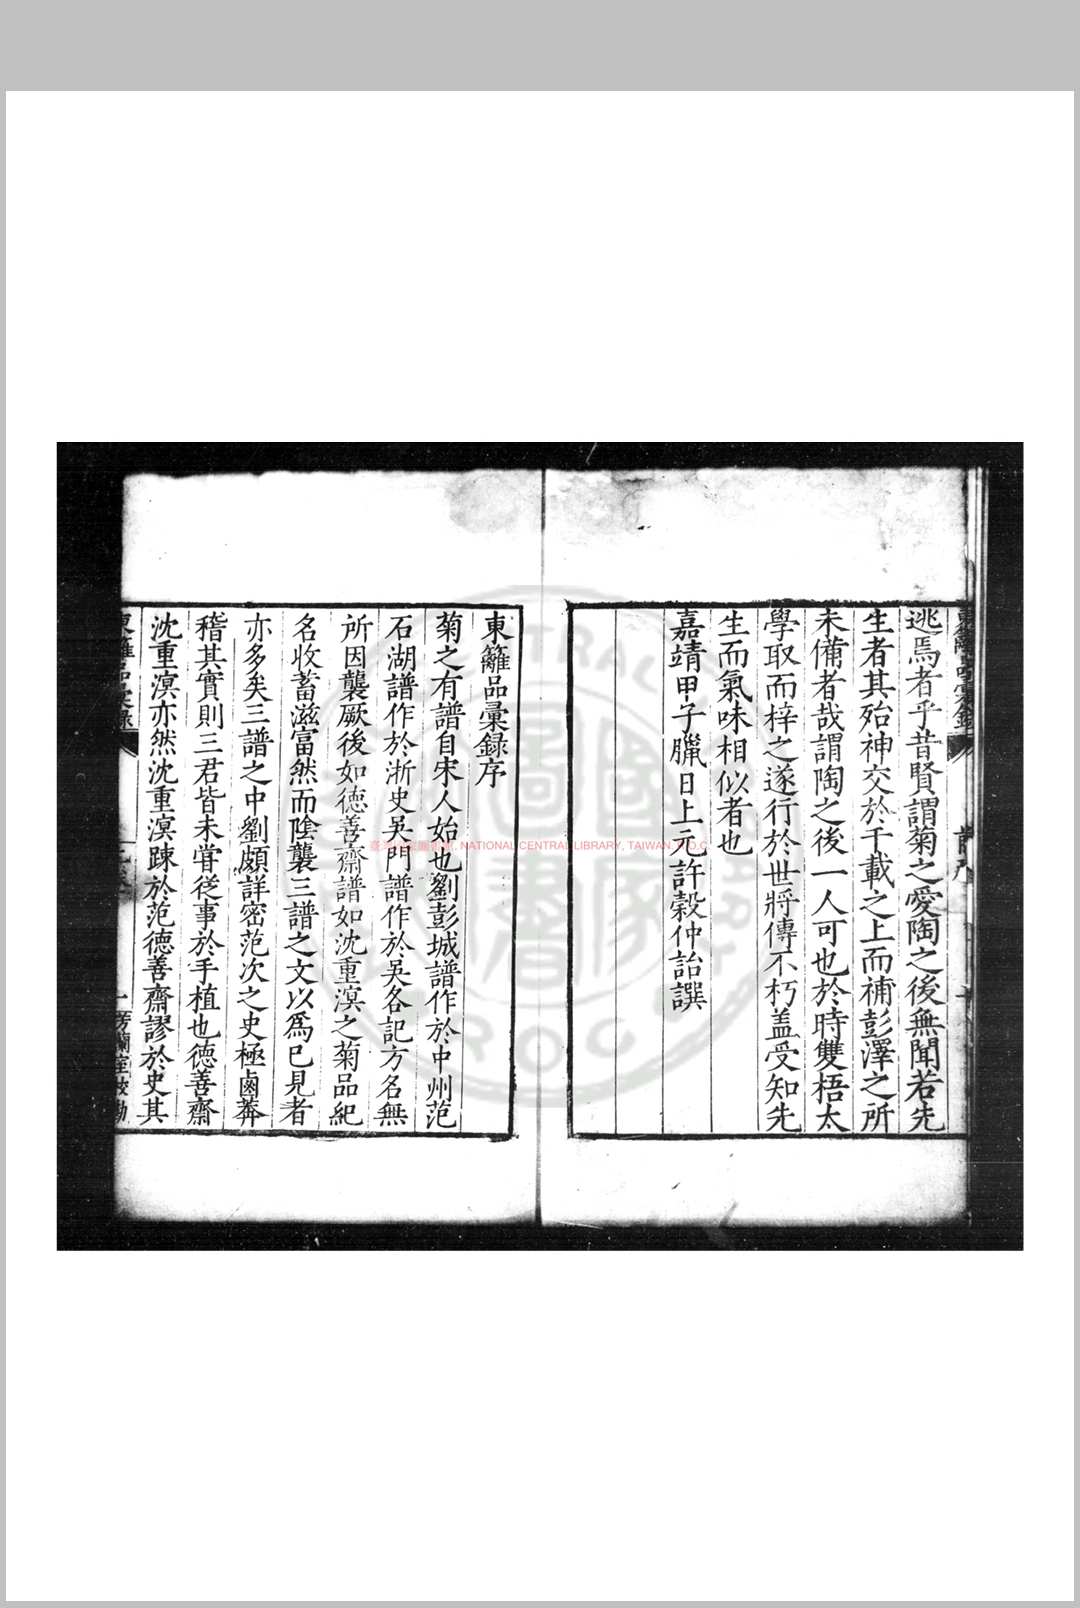 逃焉者乎昔賢謂菊之愛陶之後無聞若先
生者其殆神交於千載之上而補彭澤之所
未備者哉謂陶之後一人可也於時雙梧太
學取而梓之遂行於世將傳不朽盖受知先
生而氣味相似者也
嘉靖甲子臘日上元許穀仲詒譔
東籬品彚録序
菊之有譜自宋人始也劉彭城譜作於中州范
石湖譜作於淅史吳門譜作於吳各記方名無
所因襲厥後如德善齋譜如沈重溟之菊品紀
名收蓄滋富然而陰襲三譜之文以爲已見者
亦多矣三譜之中劉頗詳密范次之史極鹵莾
稽其實則三君皆未甞從事於手植也德善齋
沈重溟亦然沈重溟踈於范德善齋謬於史其
東籬品彚録
一
芳蘭室校勘
NATIONAL CENTRAL LIBRARY, TAIWAN, R.O.C